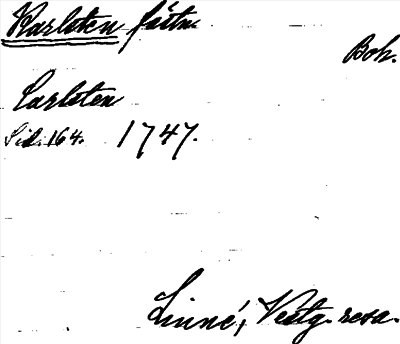 Karlsten fästn.
Boh.
Carlsten
Sid. 164. 1747.
Linné, Vestg. resa.